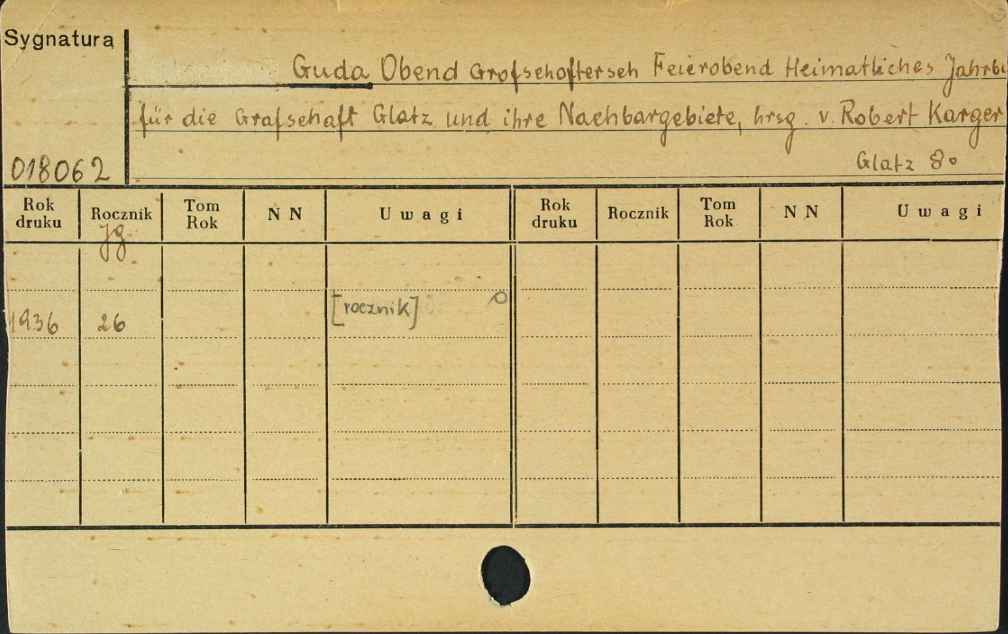 Sygnatura
Guda Obend Grofschoftersch Feierobend Heimatliches Jahrbu
für die Grafschaft Glatz und ihre Nachbargebiete, hrsg. v. Robert Karger
018062
Glatz 8°
Rok druku Rocznik Tom Rok N N Uwagi Rok druku Rocznik Tom Rok N N Uwagi
Jg
1936 26 [rocznik]